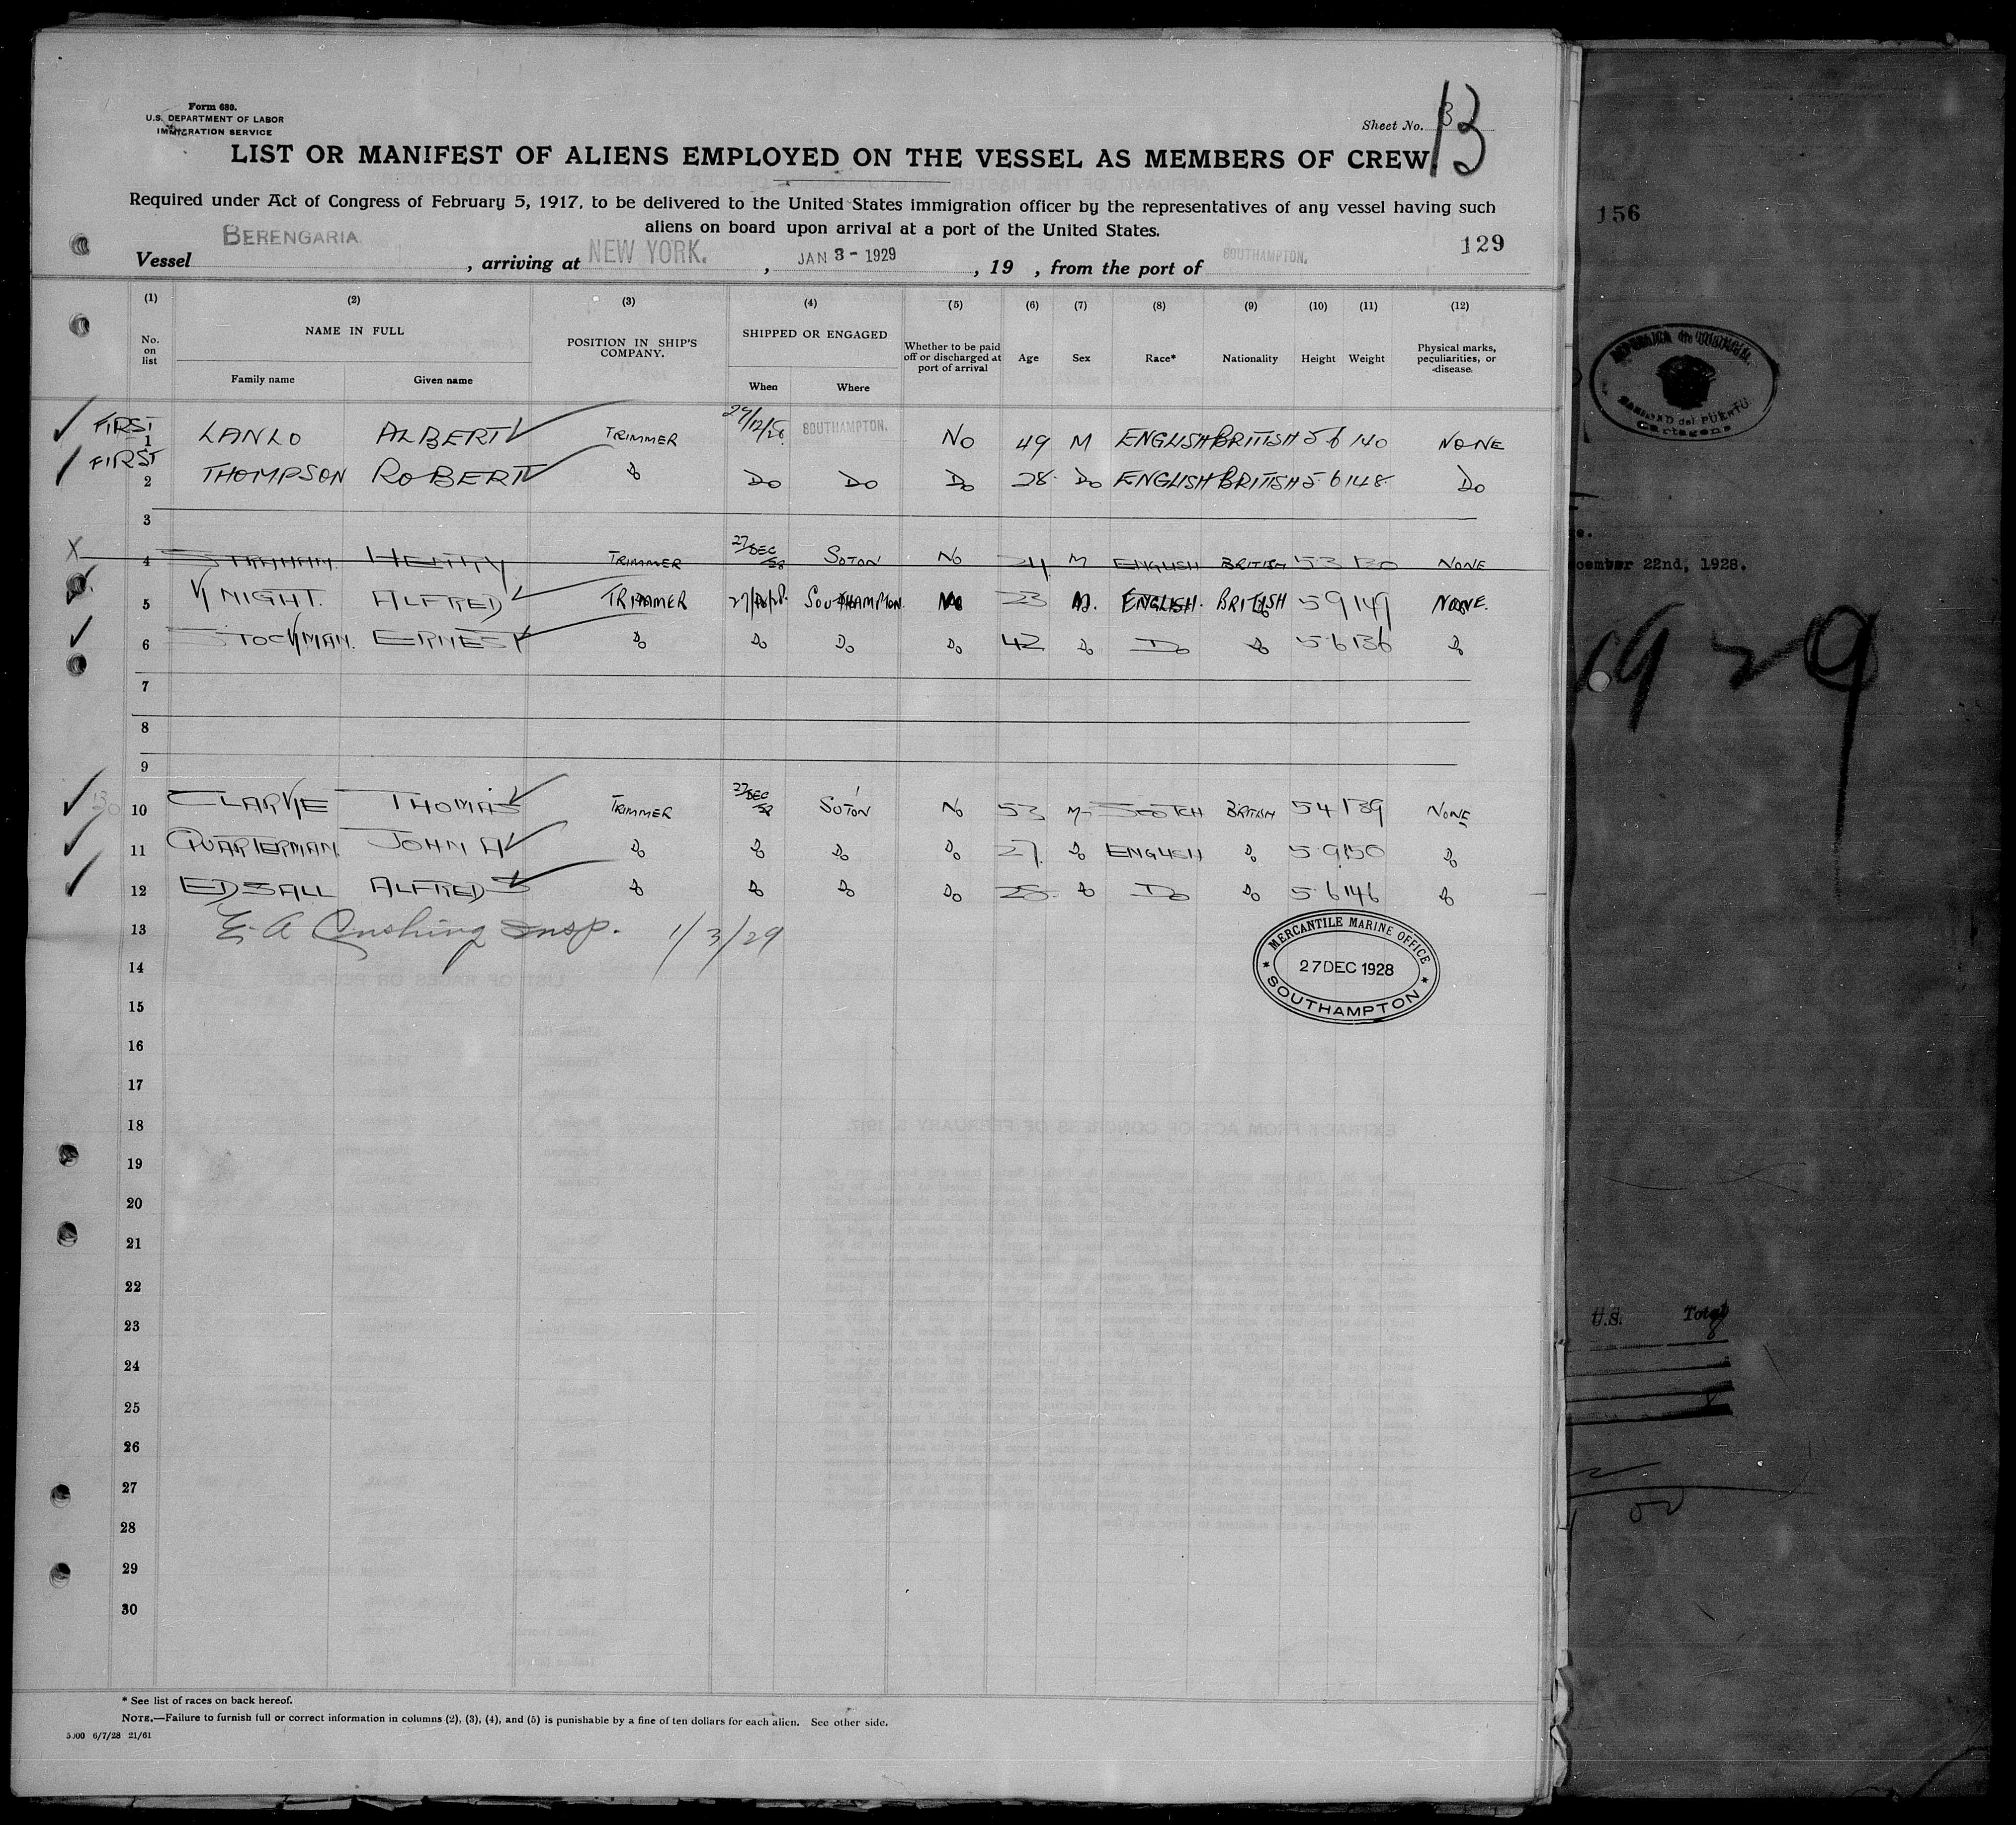 Form 680.
U.S. DEPARTMENT OF LABOR
IMMIGRATION SERVICE
Sheet No. 3
13
LIST OR MANIFEST OF ALIENS EMPLOYED ON THE VESSEL AS MEMBERS OF CREW
Required under Act of Congress of February 5, 1917, to be delivered to the United States immigration officer by the representatives of any vessel having such
aliens on board upon arrival at a port of the United States.
129
Vessel BERENGARIA, arriving at NEW YORK., JAN 3 - 1929, 19 , from the port of SOUTHAMPTON.
(1) (2) (3) (4) (5) (6) (7) (8) (9) (10) (11) (12)
No. on list NAME IN FULL POSITION IN SHIP'S COMPANY. SHIPPED OR ENGAGED Whether to be paid off or discharged at port of arrival Age Sex Race* Nationality Height Weight Physical marks, peculiarities, or disease
Family name Given name When Where
FIRST 1 LANLO ALBERT TRIMMER 27/12/28 SOUTHAMPTON. NO 49 M ENGLISH BRITISH 5 6 140 NONE
FIRST 2 THOMPSON ROBERT Do Do Do Do 28 Do ENGLISH BRITISH 5 6 148 Do
3
X 4 HENRY TRIMMER 27 DEC 28 SOTON NO M ENGLISH BRITISH 5 3 130 NONE
5 KNIGHT. ALFRED TRIMMER 27/12/28. SOUTHAMPTON. NO 23 M. ENGLISH. BRITISH 5 9 149 NONE.
6 STOCKMAN. ERNEST Do Do Do Do 42 Do Do Do 5.6 136 Do
7
8
9
10 CLARKE THOMAS TRIMMER 27 DEC 28 SOTON NO 53 M SCOTCH BRITISH 5 4 139 NONE
11 QUARTERMAN JOHN A Do Do Do Do 27. Do ENGLISH Do 5.9 150 Do
12 EDSALL ALFRED S Do Do Do Do 28. Do Do Do 5.6 146 Do
13 E. A Cushing Insp. 1/3/29
MERCANTILE MARINE OFFICE
27 DEC 1928
SOUTHAMPTON
14
15
16
17
18
19
20
21
22
23
24
25
26
27
28
29
30
* See list of races on back hereof.
NOTE.—Failure to furnish full or correct information in columns (2), (3), (4), and (5) is punishable by a fine of ten dollars for each alien. See other side.
5000 6/7/28 21/61
156
SANIDAD del PUERTO
Cartagena
22nd, 1928.
1929
U.S. Total